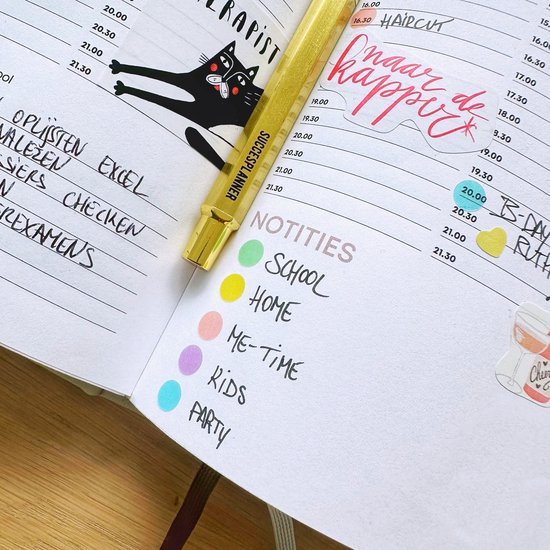 THERAPIST
20.00
20.30
21.00
21.30
OPLIJSTEN EXCEL
CHECKEN
SUCCESPLANNER
16.30 HAIRCUT
naar de
kapper
19.00
19.30
20.00
20.30
21.00
21.30
16.00
16.30
17.00
17.30
18.00
18.30
19.00
19.30
20.00 B-DAY
20.30
21.00 RUTH
21.30
NOTITIES
SCHOOL
HOME
ME-TIME
KIDS
PARTY